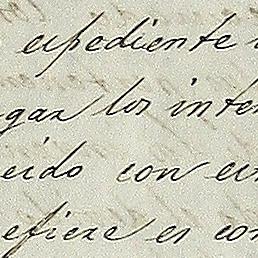 expediente
gar los inter
eido con
efiere es con